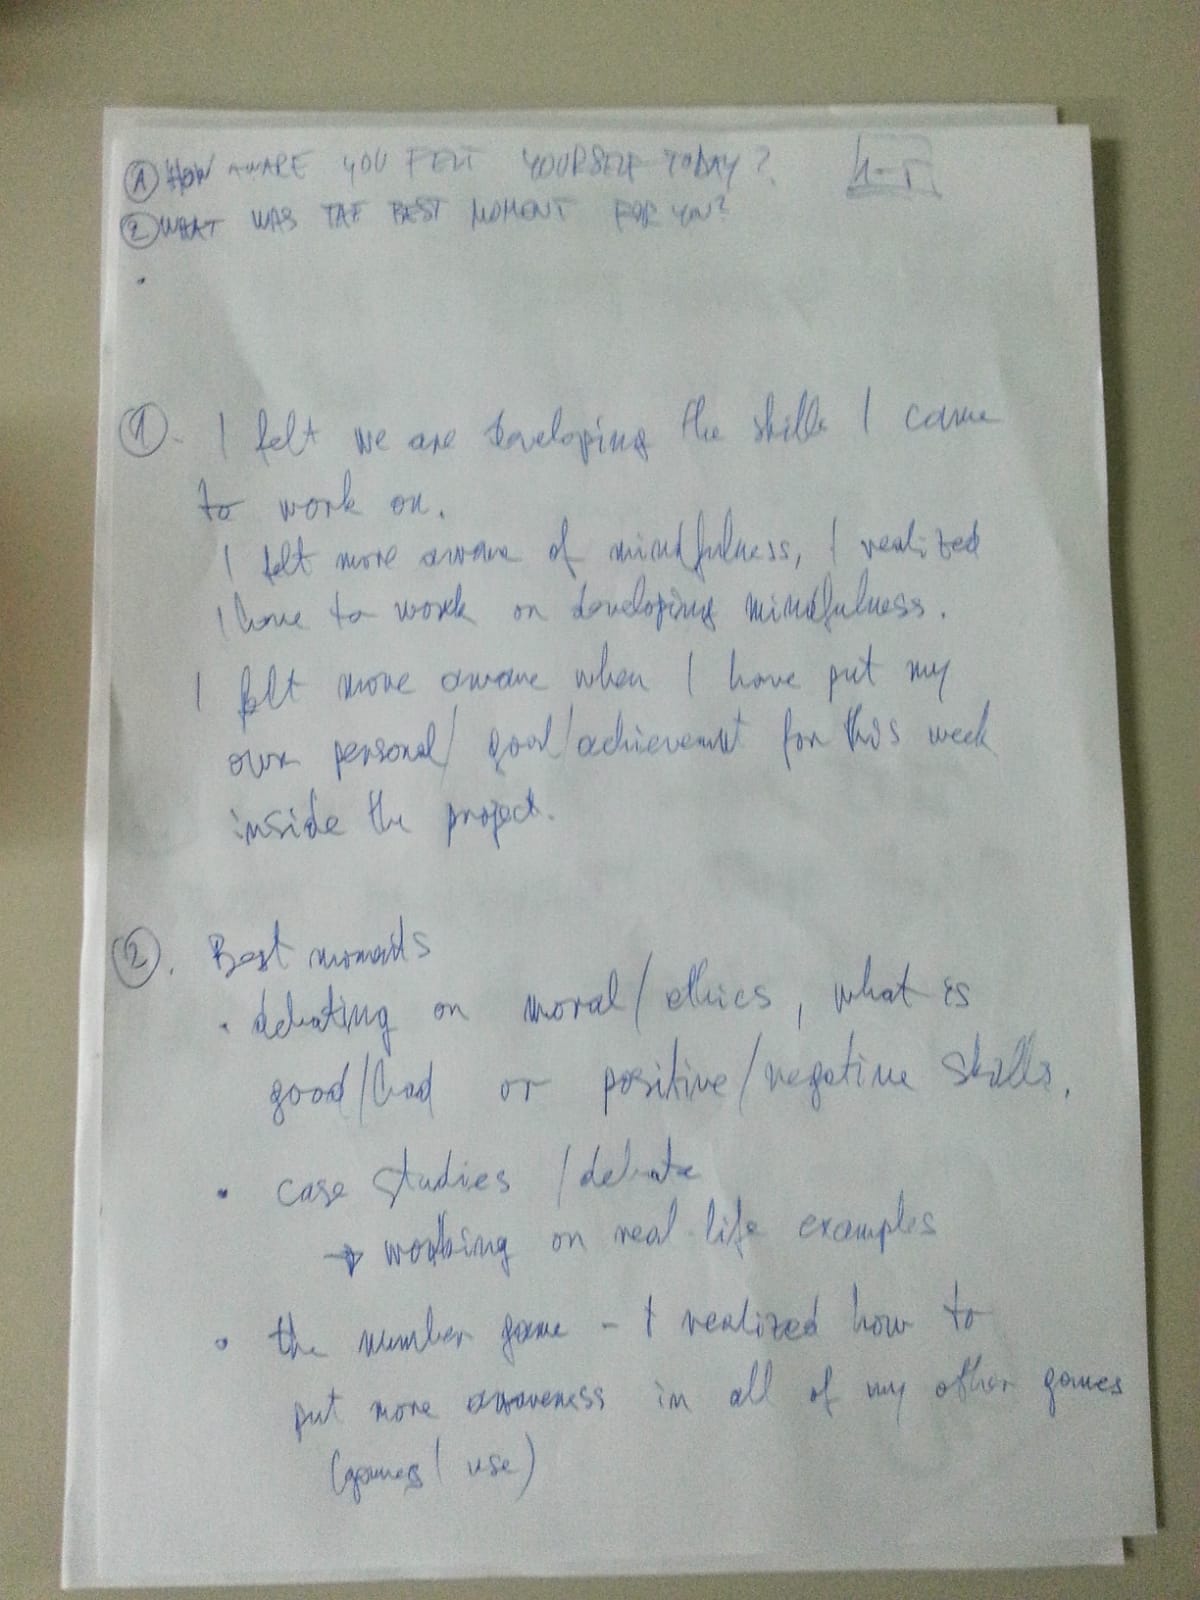 ① HOW AWARE YOU FELT YOURSELF TODAY?
② WHAT WAS THE BEST MOMENT FOR YOU?
①. I felt we are developing the skills I came
to work on.
I felt more aware of mindfulness, I realized
I have to work on developing mindfulness.
I felt more aware when I have put my
own personal/ goal/achievement for this week
inside the project.
②. Best moments
• debating on moral/ethics, what is
good/bad or positive/negative skills.
• case studies /debate
→ working on real-life examples
• the number game - I realized how to
put more awareness in all of my other games
(games I use)